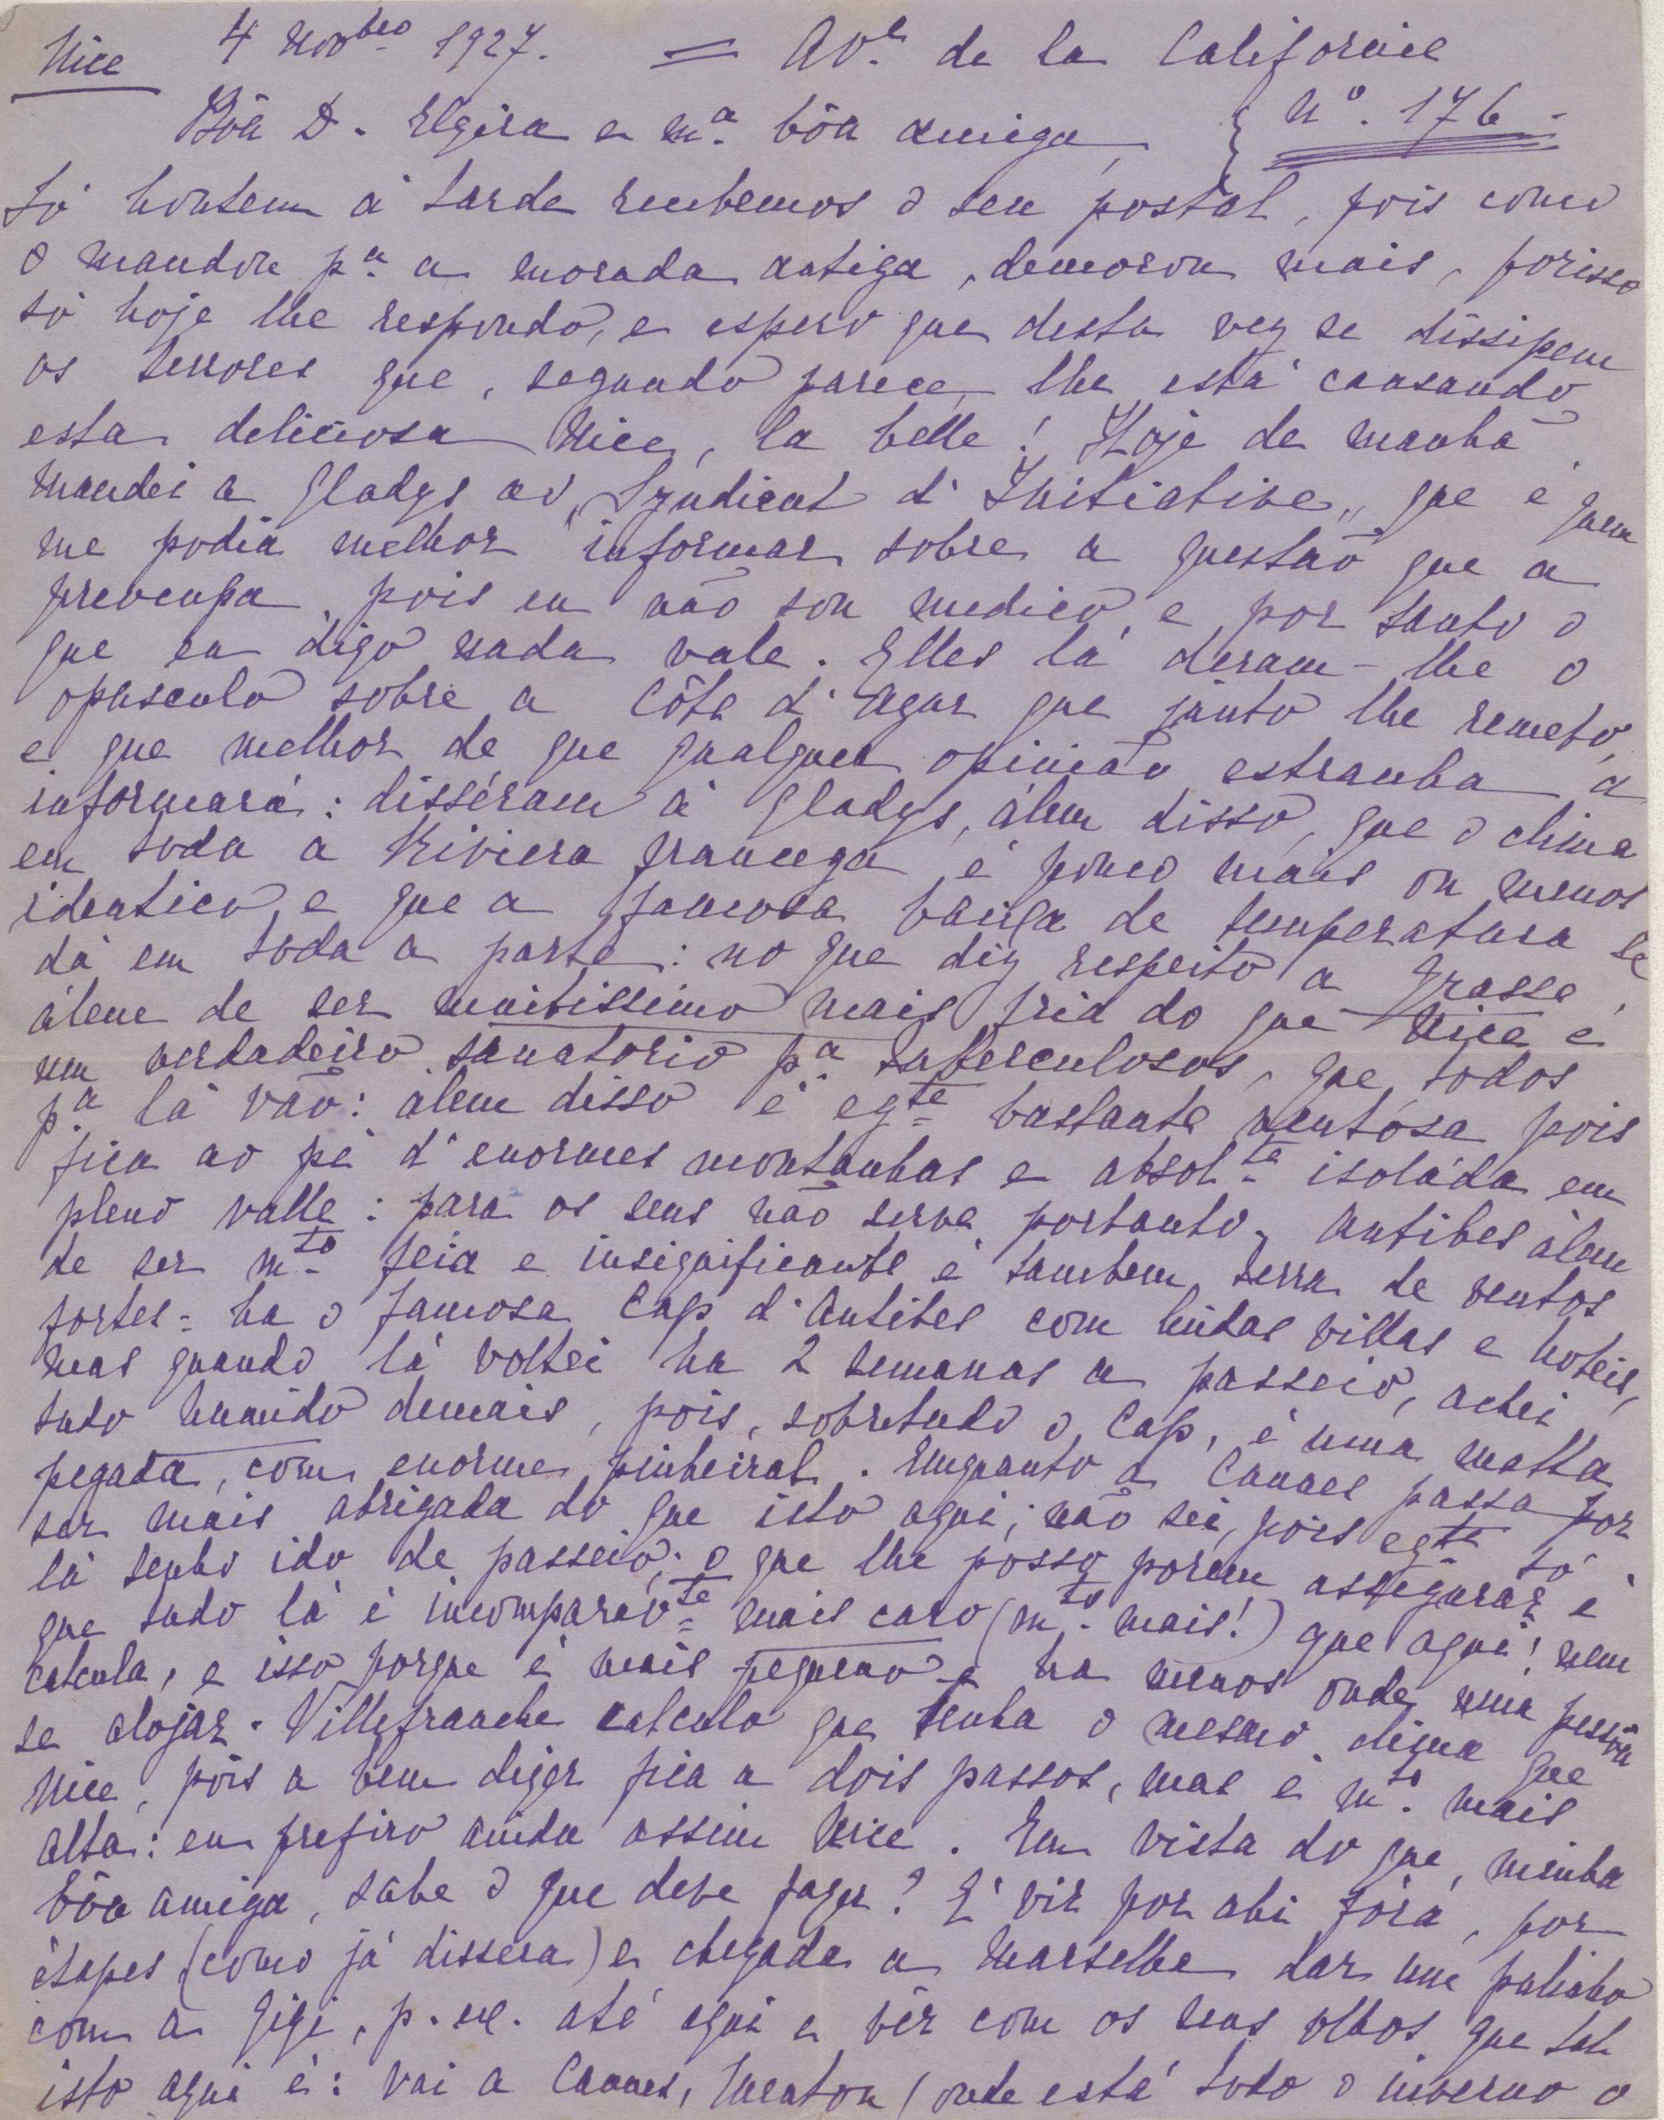 Nice 4 Novbro 1927. = Ave. de la Californie
Bôa D. Elzira e ma. bôa amiga, { No. 176 -
Só hontem á tarde recebemos o seu postal, pois como
o mandou pa. a morada antiga, demorou mais, porisso
só hoje lhe respondo, e espero que desta vez se dissipem
os terrores que, segundo parece, lhe está causando
esta deliciosa Nice, la belle! Hoje de manhã
mandei a Gladys ao "Syndicat d'Initiative,, que é quem
me podia melhor informar sobre a questão que a
preoccupa, pois eu não sou medico, e por tanto o
que eu digo nada vale. Elles lá deram-lhe o
opusculo sobre a Côte d'Azur que junto lhe remeto,
e que melhor de que qualquer opinião estranha a
informará: disséram á Gladys, álem disso, que o clima
em toda a Riviera franceza é pouco mais ou menos
identico, e que a famosa baixa de temperatura se
dá em toda a parte: no que diz respeito a Grasse,
álem de ser muitissimo mais fria do que Nice é
um verdadeiro sanatorio pa. tuberculosos, que todos
pa. lá vão: álem disso é egte. bastante ventósa pois
fica ao pé d'enormes montanhas e absolte. isoláda em
pleno valle: para os seus não serve, portanto. Antibes álem
de ser mto. feia e insignificante é tambem terra de ventos
fortes: ha o famoso Cap d'Antibes com lindas villas e hoteis,
mas quando lá voltei ha 2 semanas a passeio, achei
tudo humido demais, pois, sobretudo o Cap, é uma matta
pegada, com enorme pinheiral. Emquanto a Cannes passa por
ser mais abrigada do que isto aqui; não sei, pois egte. só
lá tenho ido de passeio; o que lhe posso porém assegurar é
que tudo lá é incomparávte. mais caro (mto. mais!) que aqui! nem
calcula, e isso porque é mais pequeno e ha menos onde uma pessôa
se alojar. Villefranche calculo que tenha o mesmo clima que
Nice, pois a bem dizer fica a dois passos, mas é mto. mais
alta: eu prefiro ainda assim Nice. Em vista do que, minha
bôa amiga, sabe o que deve fazer? É vir por ahi fóra, por
étapes (como já dissera) e chegada a Marselha dar um pulinho
com a Gigi, p. ex. até aqui e vêr com os seus olhos que tal
isto aqui é: vai a Cannes, Menton (onde está todo o inverno o